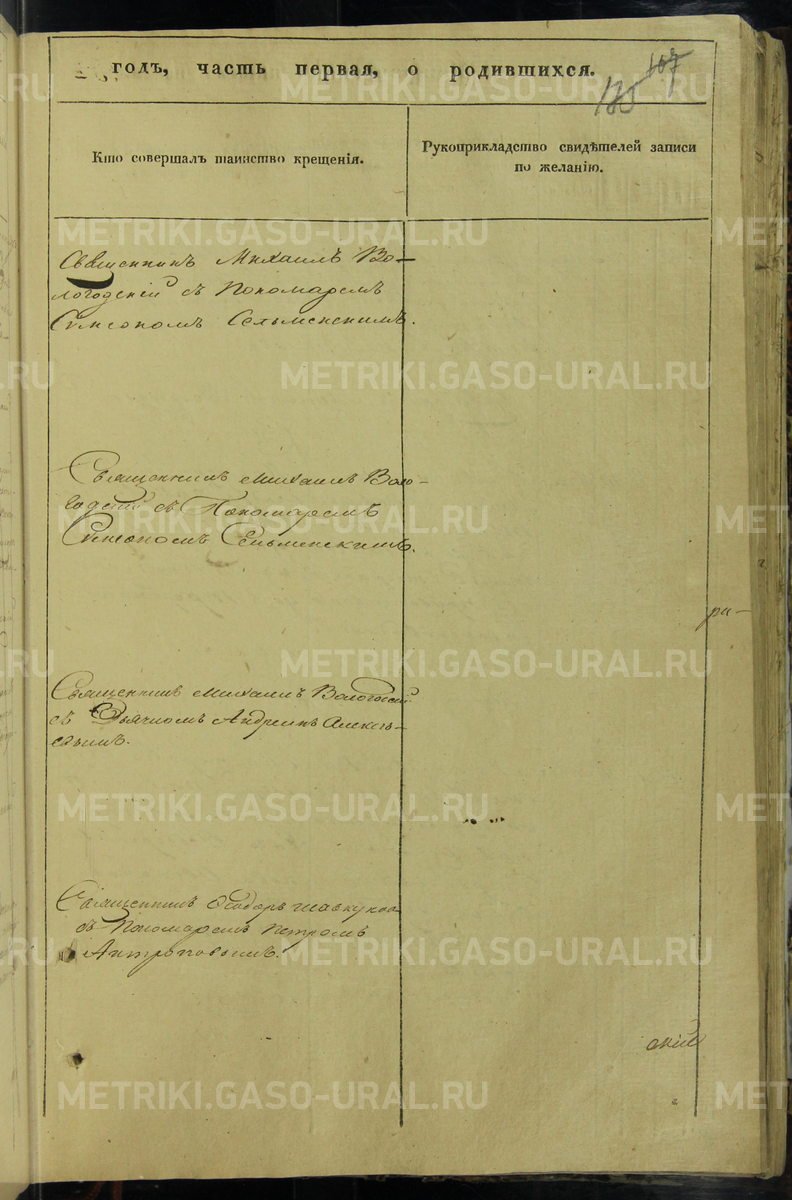 годъ, часть первая, о родившихся.
107
125
Кто совершалъ таинство крещенія.
Рукоприкладство свидѣтелей записи
по желанію.
Священникъ Михаилъ Во-
логодскій съ Пономаремъ
Симеономъ Сельменскимъ.
Священникъ Михаилъ Воло-
годскій съ Пономаремъ
Симеономъ Сельменскимъ.
ри-
Священникъ Михаилъ Вологодскій
съ Дьячкомъ Андреемъ Алексѣ-
евымъ.
Священникъ Ѳеодоръ
съ Пономаремъ Петромъ
Антроповымъ.
скій
METRIKI.GASO-URAL.RU